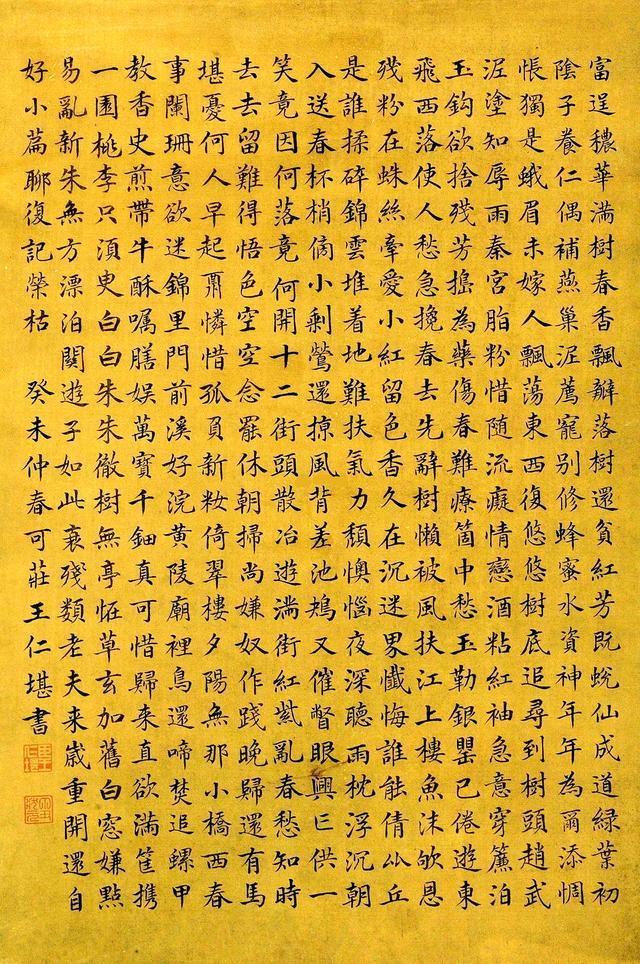 富逞穠華滿樹春香飄瓣落樹還貧紅芳既蛻仙成道綠葉初
陰子養仁偶補燕巢泥薦寵別修蜂蜜水資神年年為爾添惆
悵獨是蛾眉未嫁人飄蕩東西復悠悠樹底追尋到樹頭趙武
泥塗知辱雨秦宮脂粉惜随流癡情戀酒粘紅袖急意穿簾泊
玉鈎欲捨殘芳搗為藥傷春難療箇中愁玉勒銀罌已倦遊東
飛西落使人愁急挽春去先辭樹懶被風扶江上樓魚沫欨恩
殘粉在蛛絲牽愛小紅留色香久在沉迷界懺悔誰能倩丘
是誰揉碎錦雲堆着地難扶氣力頹懊惱夜深聽雨枕浮沉朝
入送春杯梢小剩鶯還掠風背差池鳩又催瞥眼興亡供一
笑竟因何落竟何開十二街頭散冶遊滿街紅紫亂春愁知時
去去留難得悟色空空念罷休朝掃尚嫌奴作踐晚歸還有馬
堪憂何人早起憐惜孤負新妝倚翠樓夕陽無那小橋西春
事闌珊意欲迷錦里門前溪好浣黃陵廟裡鳥還啼焚追螺甲
教香史煎帶牛酥囑膳娛萬寶千鈿真可惜歸来直欲滿筐携
一園桃李只須臾白白朱朱徹樹無亭恠草玄加舊白窓嫌點
易亂新朱無方漂泊関遊子如此衰殘類老夫来嵗重開還自
好小篇聊復記榮枯 癸未仲春可莊王仁堪書